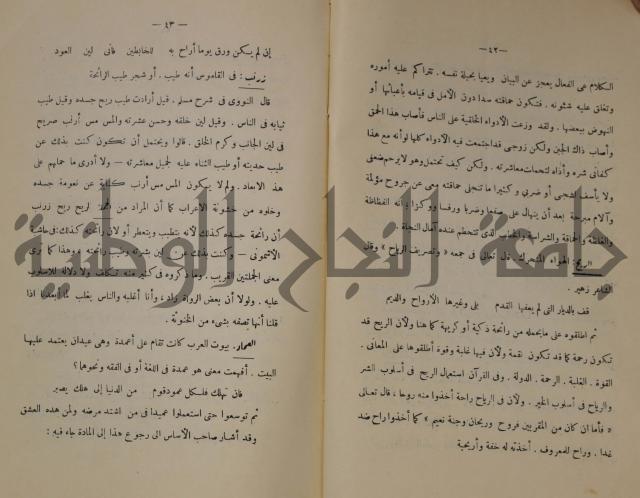 — ٤٢ —
الكلام عى الفعال يعجز عن البيان ويعيا بحيلة نفسه . تتراكم عليه أموره
وتغلق عليه شئونه . فتكون حماقته سدا دون الأمل فى قيامه بأعبائها أو
النهوض ببعضها . ولقد وزعت الأدواء الخلقية على الناس فأصاب هذا الحمق
وأصاب ذاك الجبن ولكن زوجى قد اجتمعت فيه الأدواء كلها لو أنه مع هذا
كفانى شره وأذاه لتحملت معاشرته . ولكن كيف تحتمل وهو لا يرحم ضعفى
ولا يأسف لشجى أو ضربى وكثيرا ما تنجلى حماقته معى عن جروح مؤلمة
وآلام مبرحة بعد أن ينهال على صفعا وضربا ورفسا ووكزا ، إنه الفظاظة
والغلظة والحماقة والشراسة والخطب الذى تتحطم عنده آمال النجاة .
الريح : الهواء المتحرك . قال تعالى فى جمعه « وتصريف الرياح » وقال
الشاعر زهير .
قف بالديار التى لم يعفها القدم بلى وغيرها الأرواح والديم
ثم اطلقوه على ما يحمله من رائحة ذكية أو كريهة كما هنا ولأن الريح قد
تكون رحمة كما قد تكون نقمة ولأن فيها غلبة وقوة أطلقوها على المعانى .
القوة . الغلبة . الرحمة . الدولة . وفى القرآن استعمال الريح فى أسلوب الشر
والرياح فى أسلوب الخير . ولأن فى الرياح راحة أخذوا منه روحا ، قال تعالى
« فأما ان كان من المقربين فروح وريحان وجنة نعيم » كما أخذوا راح ضد
غدا . وراح للمعروف . أخذته له خفة وأريحية
— ٤٣ —
إن لم يسكن ورق يوما أراح به للخابطين فانى لين العود
زرنب : فى القاموس أنه طيب . أو شجر طيب الرائحة
قال النووى فى شرح مسلم . قيل أرادت طيب ريح جسده وقيل طيب
ثيابه فى الناس . وقيل لين خلقه وحسن عشرته والمس مس أرنب صريح
فى لين الجانب وكرم الخلق . قالوا ويحتمل أن تكون كنت بذلك عن
طيب حديثه أو طيب الثناء عليه لجميل معاشرته — ولا أدرى ما حملهم على
هذا الابعاد . ولم لا يكون المس مس أرنب كناية عن نعومة جسده
وخلوه من خشونة الأعراب كما أن المراد من الريح ريح زرنب
أن رائحة جسده كذلك لأنه يتطيب ويتعطر أو لأن رائحته كذلك
وكنت بذلك عن لين بشرته وطيب رائحته » وهذا كما ترى
معنى الجملتين القريب . وما ذكروه فى كثير منه تكلف ولا دلالة للاسلوب
عليه . ولولا أن بعض الرواة زاد ، وأنا أغلبه والناس يغلب لما أبعدنا اذا
قلنا أنها تصفه بشىء من الخنوثة .
العماد . بيوت العرب كانت تقام على أعمدة وهى عيدان يعتمد عليها
البيت . أفهمت معنى هو عمدة فى اللغة أو فى الفقه ونحوهما ؟
فان تهلك فلكل عمود قوم من الدنيا إلى هلك يصير
ثم توسعوا حتى استعملوا عميدا فى من اشتد مرضه ولمن هده العشق
وقد أشار صاحب الأساس الى رجوع هذا إلى المادة جاء فيه :
جامعة النجاح الوطنية